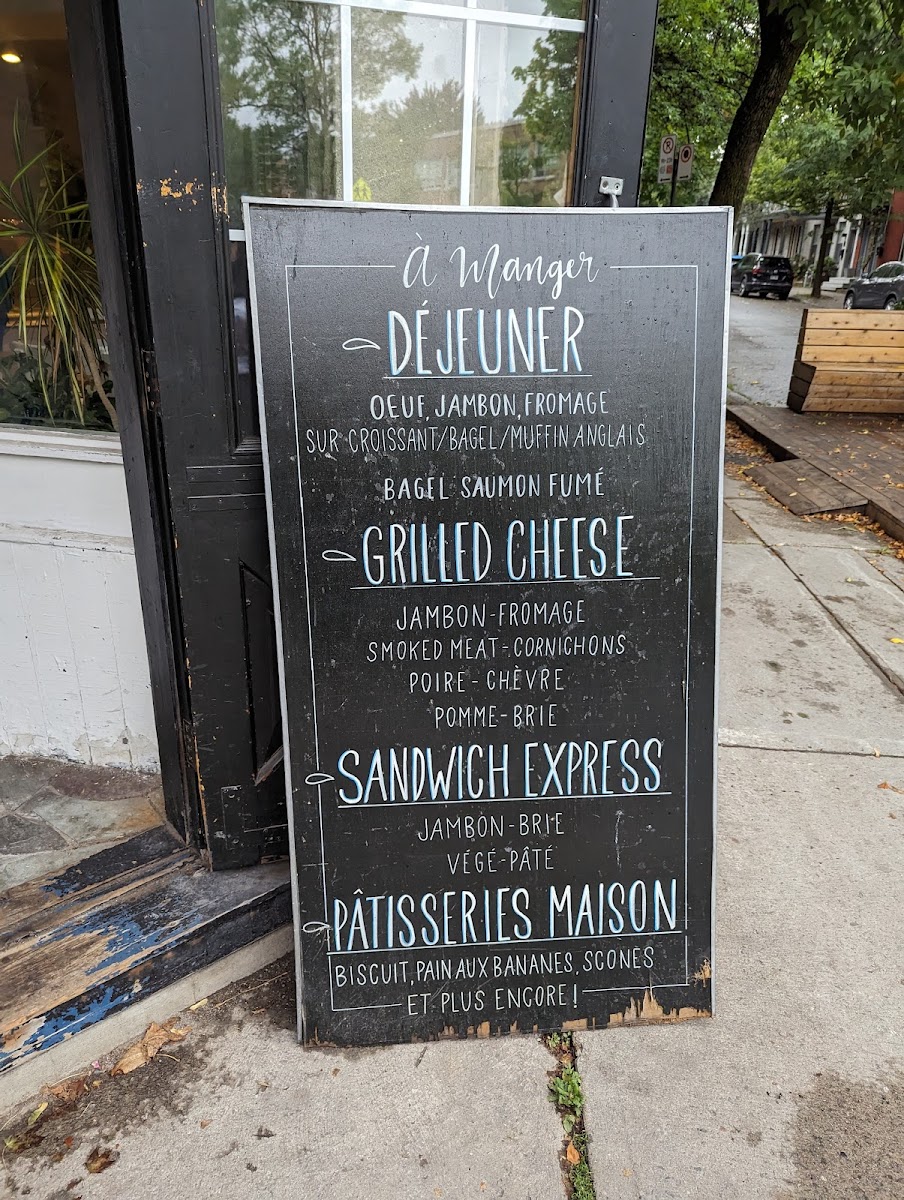 À Manger
DÉJEUNER
OEUF, JAMBON, FROMAGE
SUR CROISSANT/BAGEL/MUFFIN ANGLAIS
BAGEL SAUMON FUMÉ
GRILLED CHEESE
JAMBON-FROMAGE
SMOKED MEAT-CORNICHONS
POIRE-CHÈVRE
POMME-BRIE
SANDWICH EXPRESS
JAMBON-BRIE
VÉGÉ-PÂTÉ
PÂTISSERIES MAISON
BISCUIT, PAIN AUX BANANES, SCONES
ET PLUS ENCORE!